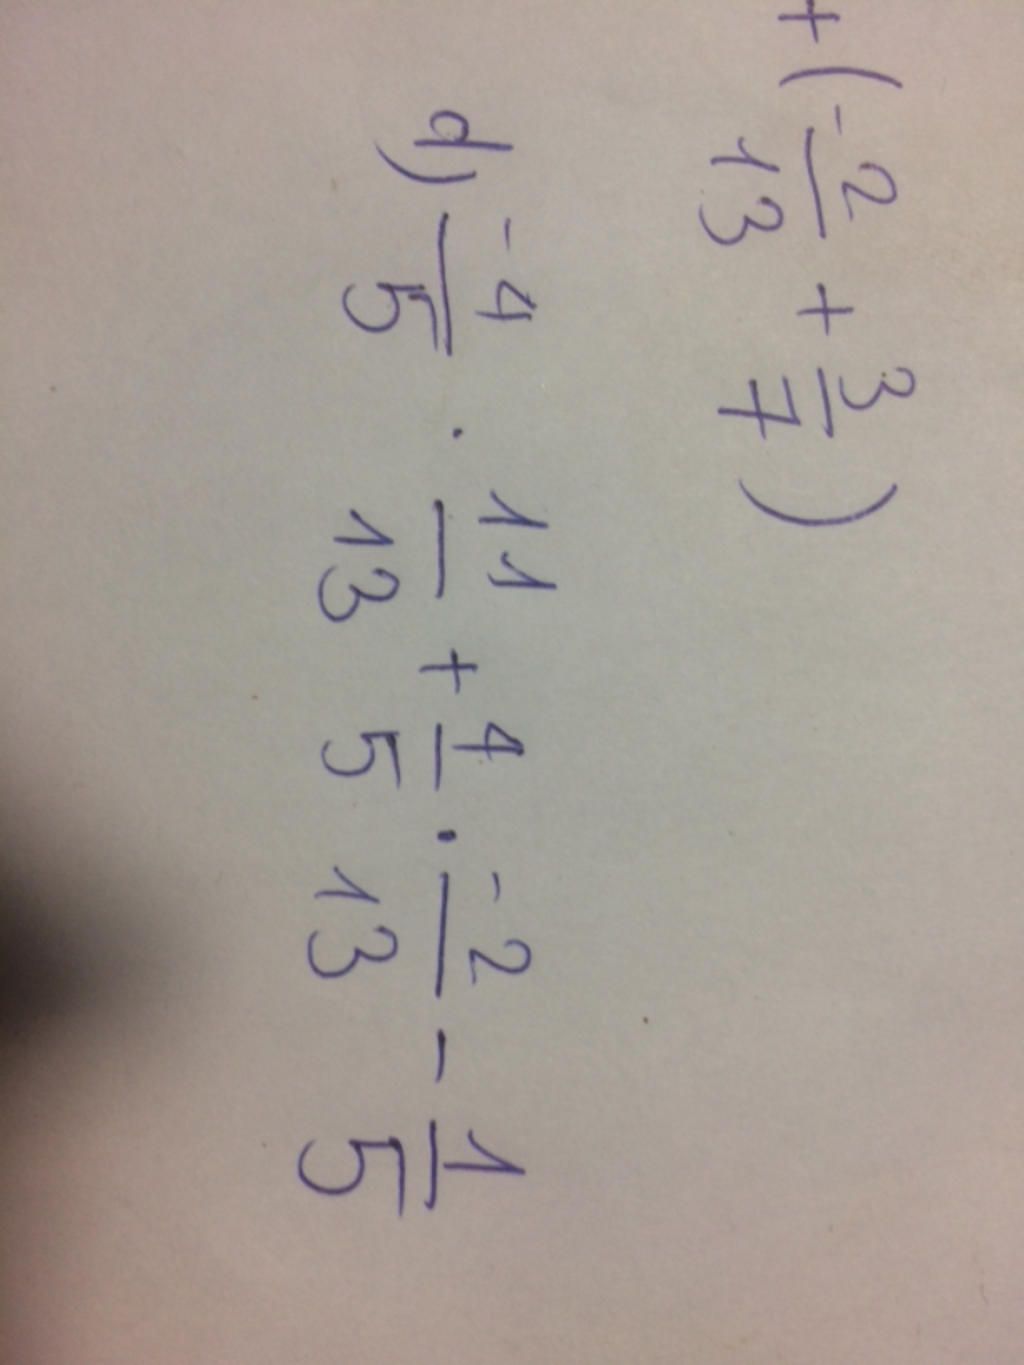 + ( -2/13 + 3/7 )
d) -4/5 . 11/13 + 4/5 . -2/13 - 1/5